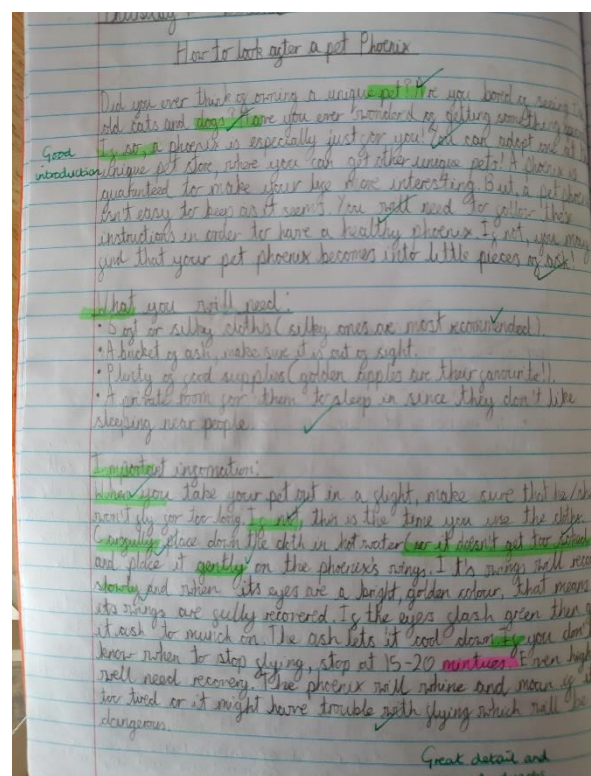 Thursday
How to look after a pet Phoenix
Did you ever think of owning a unique pet? Are you bored of seeing
old cats and dogs? Have you ever wonder'd of getting something
If so, a phoenix is especially just for you! You can adopt one at the
Good
introduction
unique pet store, where you can get other unique pets! A phoenix is
guaranteed to make your life more interesting. But a pet phoenix
isn't easy to keep as it seems. You will need to follow these
instructions in order to have a healthy phoenix. If not, you may
find that your pet phoenix becomes into little pieces of ash!
What you will need:
• Soft or silky cloths (silky ones are most recommended).
• A bucket of ash, make sure it is out of sight.
• Plenty of food supplies (golden apples are their favourite!).
• A private room for them to sleep in since they don't like
sleeping near people.
Important information:
When you take your pet out in a flight, make sure that he/she
won't fly for too long. If not, this is the time you use the cloths.
Carefully place down the cloth in hot water (so it doesn't get too
and place it gently on the phoenix's wings. It's wings will
slowly and when its eyes are a bright, golden colour, that means
its wings are fully recovered. If the eyes flash green then
it ash to munch on. The ash lets it cool down. If you don't
know when to stop flying, stop at 15-20 mintues. Even
will need recovery. The phoenix will whine and moan if it
too tired or it might have trouble with flying which will be
dangerous.
Great detail and